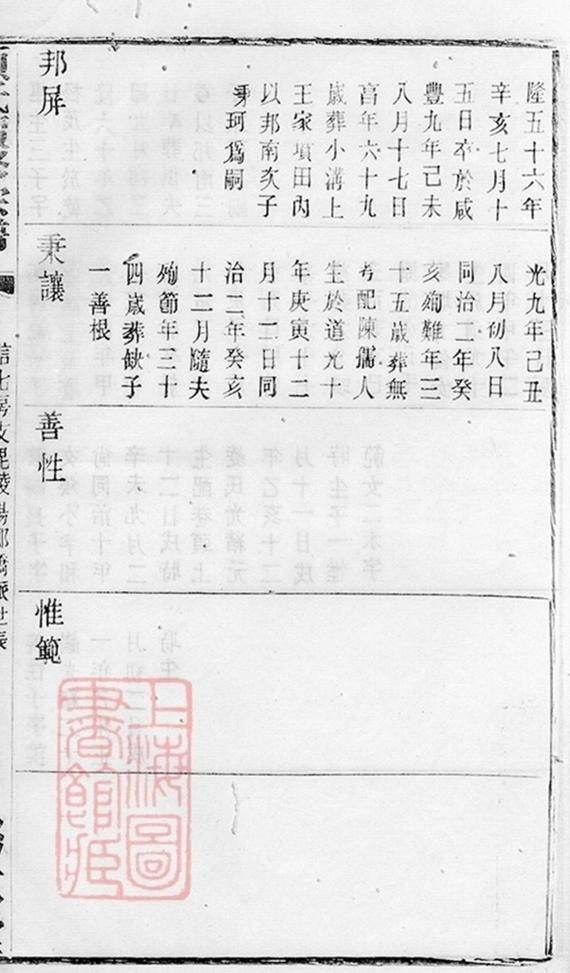 隆五十六年
辛亥七月十
五日卒於咸
豐九年己未
八月十七日
亯年六十九
歲葬小溝上
王家項田內
以邦南次子
秉珂爲嗣
邦屏
光九年己丑
八月初八日
同治二年癸
亥殉難年三
十五歲葬無
考配陳孺人
生於道光十
年庚寅十二
月十二日同
治二年癸亥
十二月隨夫
殉節年三十
四歲葬缺子
一善根
秉讓
善性
惟範
信七房支毘陵場邨橋派世表
上海圖
書館藏